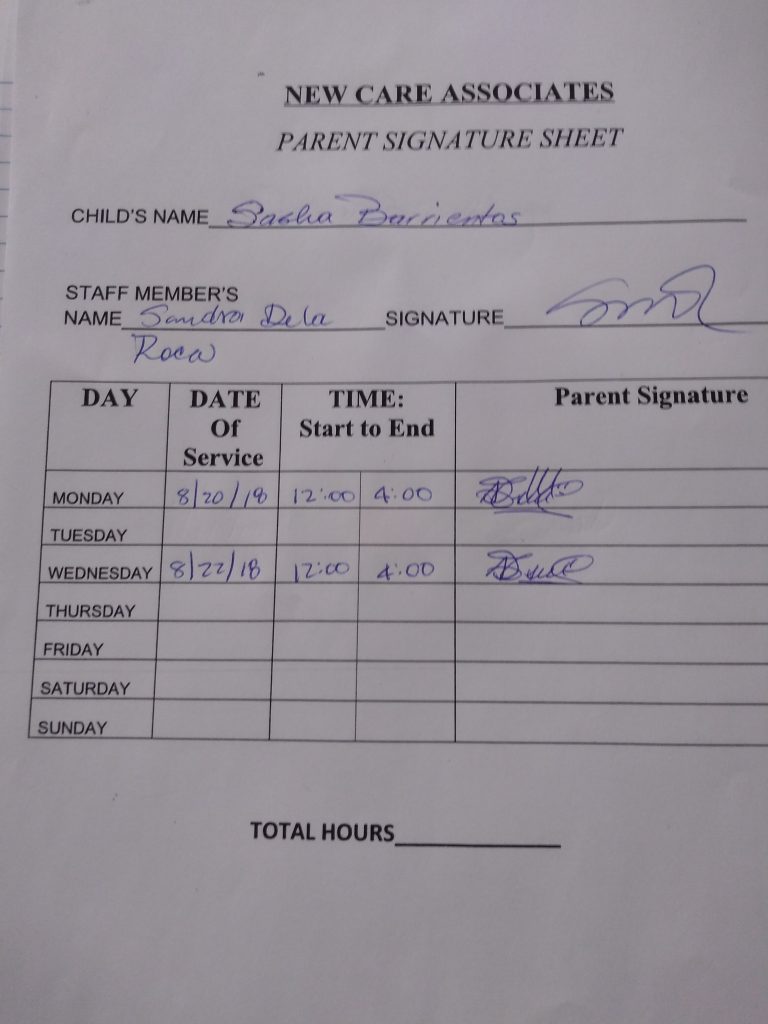 NEW CARE ASSOCIATES
PARENT SIGNATURE SHEET
CHILD'S NAME Sasha Barrientos
STAFF MEMBER'S
NAME Sandra Dela SIGNATURE
Roca
DAY DATE TIME: Parent Signature
Of Start to End
Service
MONDAY 8/20/18 12:00 4:00
TUESDAY
WEDNESDAY 8/22/18 12:00 4:00
THURSDAY
FRIDAY
SATURDAY
SUNDAY
TOTAL HOURS